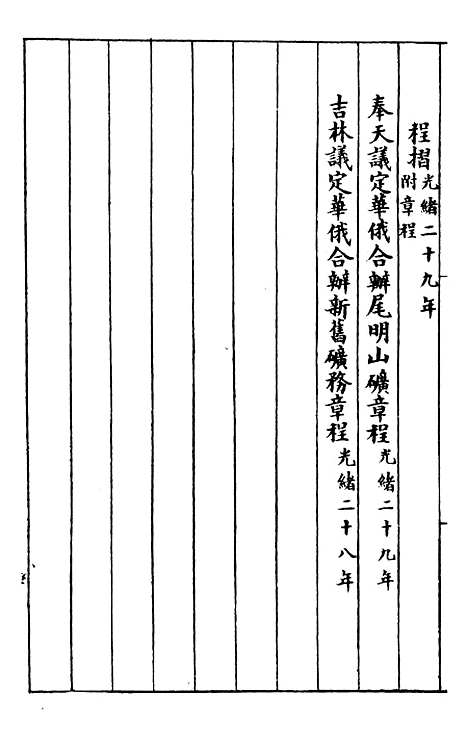 程摺光緒二十九年附章程
奉天議定華俄合辦尾明山礦章程光緒二十九年
吉林議定華俄合辦新舊礦務章程光緒二十八年